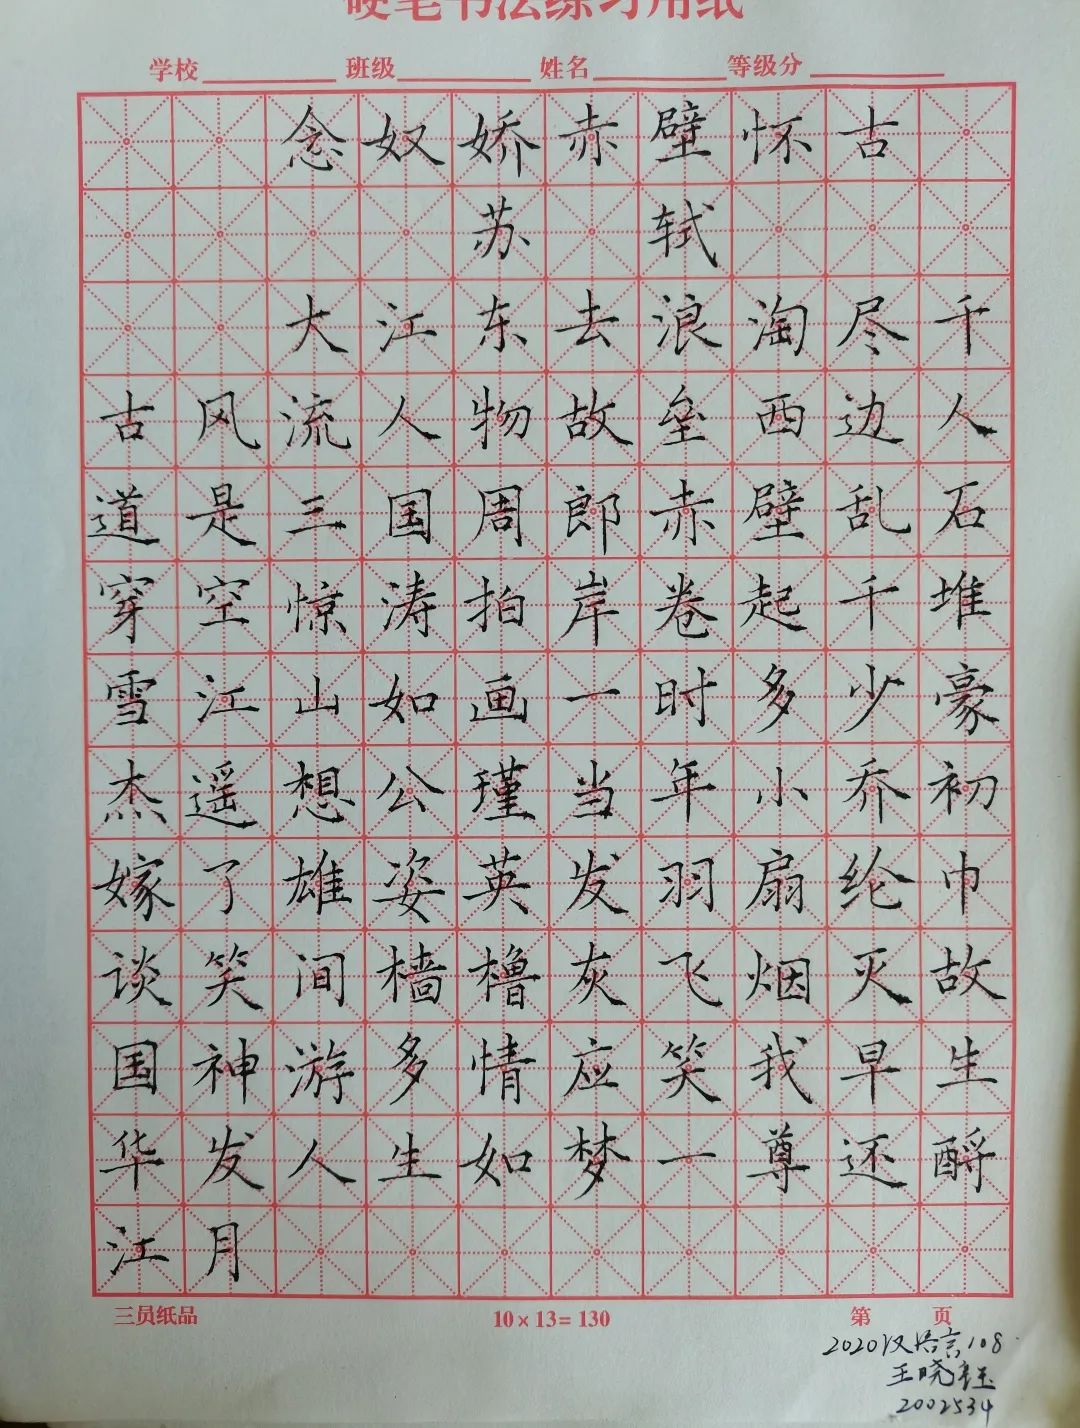 硬笔书法练习用纸
学校 班级 姓名 等级分
念奴娇赤壁怀古
苏轼
大江东去浪淘尽千
古风流人物故垒西边人
道是三国周郎赤壁乱石
穿空惊涛拍岸卷起千堆
雪江山如画一时多少豪
杰遥想公瑾当年小乔初
嫁了雄姿英发羽扇纶巾
谈笑间樯橹灰飞烟灭故
国神游多情应笑我早生
华发人生如梦一尊还酹
江月
三员纸品 10×13=130 第 页
2020汉语言108
王晓钰
2002534